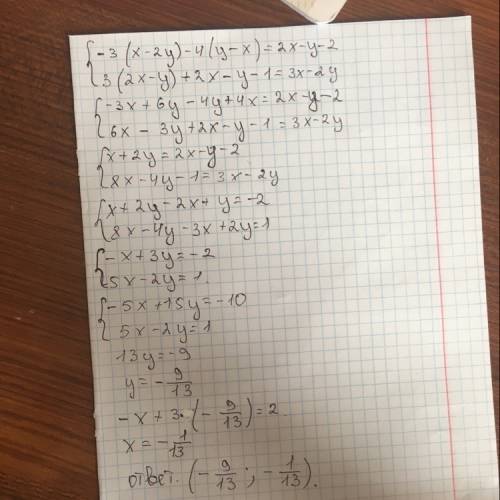 {-3(x-2y)-4(y-x)=2x-y-2
3(2x-y)+2x-y-1=3x-2y
{-3x+6y-4y+4x=2x-y-2
6x-3y+2x-y-1=3x-2y
{x+2y=2x-y-2
8x-4y-1=3x-2y
{x+2y-2x+y=-2
8x-4y-3x+2y=1
{-x+3y=-2
5x-2y=1.
{-5x+15y=-10
5x-2y=1
13y=-9
y=-9/13
-x+3·(-9/13)=2
x=-1/13
ответ. (-9/13; -1/13).